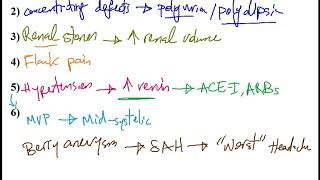 2) concentrating defects → polyuria/polydipsia
3) Renal stones → ↑ renal volume
4) Flank pain
5) Hypertension → ↑ renin → ACEI, ARBs
6)
MVP → Mid-systolic
Berry aneurysm → SAH → "Worst" Headache